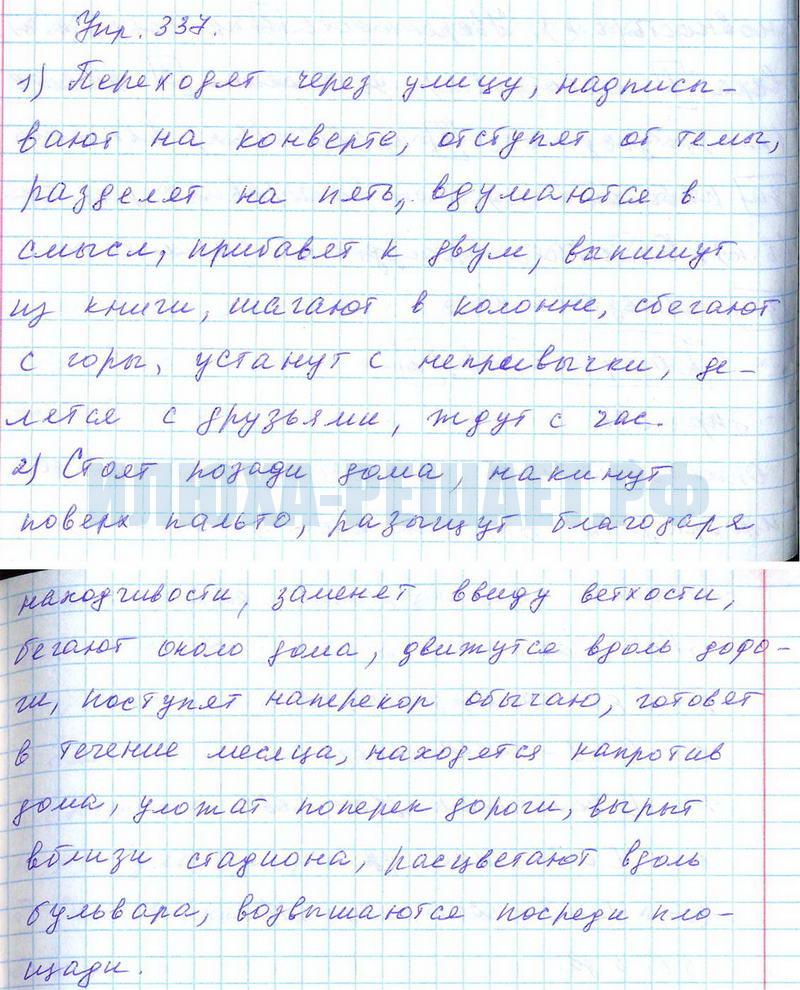 Упр. 337.
1) Переходят через улицу, надписы-
вают на конверте, отступят от темы,
разделят на пять, вдумаются в
смысл, прибавят к двум, выпишут
из книги, шагают в колонне, сбегают
с горы, устанут с непривычки, де-
лятся с друзьями, ждут с час.
2) Стоят позади дома, накинут
ИЛЮХА-РЕШАЕТ.РФ
поверх пальто, разыщут благодаря
находчивости, заменят ввиду ветхости,
бегают около дома, движутся вдоль доро-
ги, поступят наперекор обычаю, готовят
в течение месяца, находятся напротив
дома, уложат поперек дороги, вырыт
вблизи стадиона, расцветают вдоль
бульвара, возвышаются посреди пло-
щади.